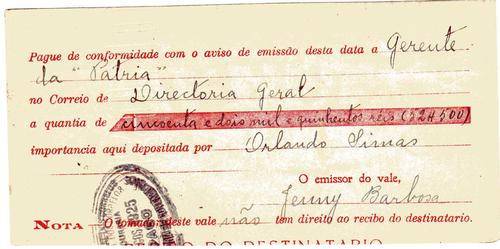 Pague de conformidade com o aviso de emissão desta data a Gerente
da "Patria"
no Correio de Directoria Geral
a quantia de cincoenta e dois mil e quinhentos réis (52$500)
importancia aqui depositada por Orlando Simas
O emissor do vale,
Jenny Barbosa
NOTA — O tomador deste vale não tem direito ao recibo do destinatario.
DO DESTINATARIO